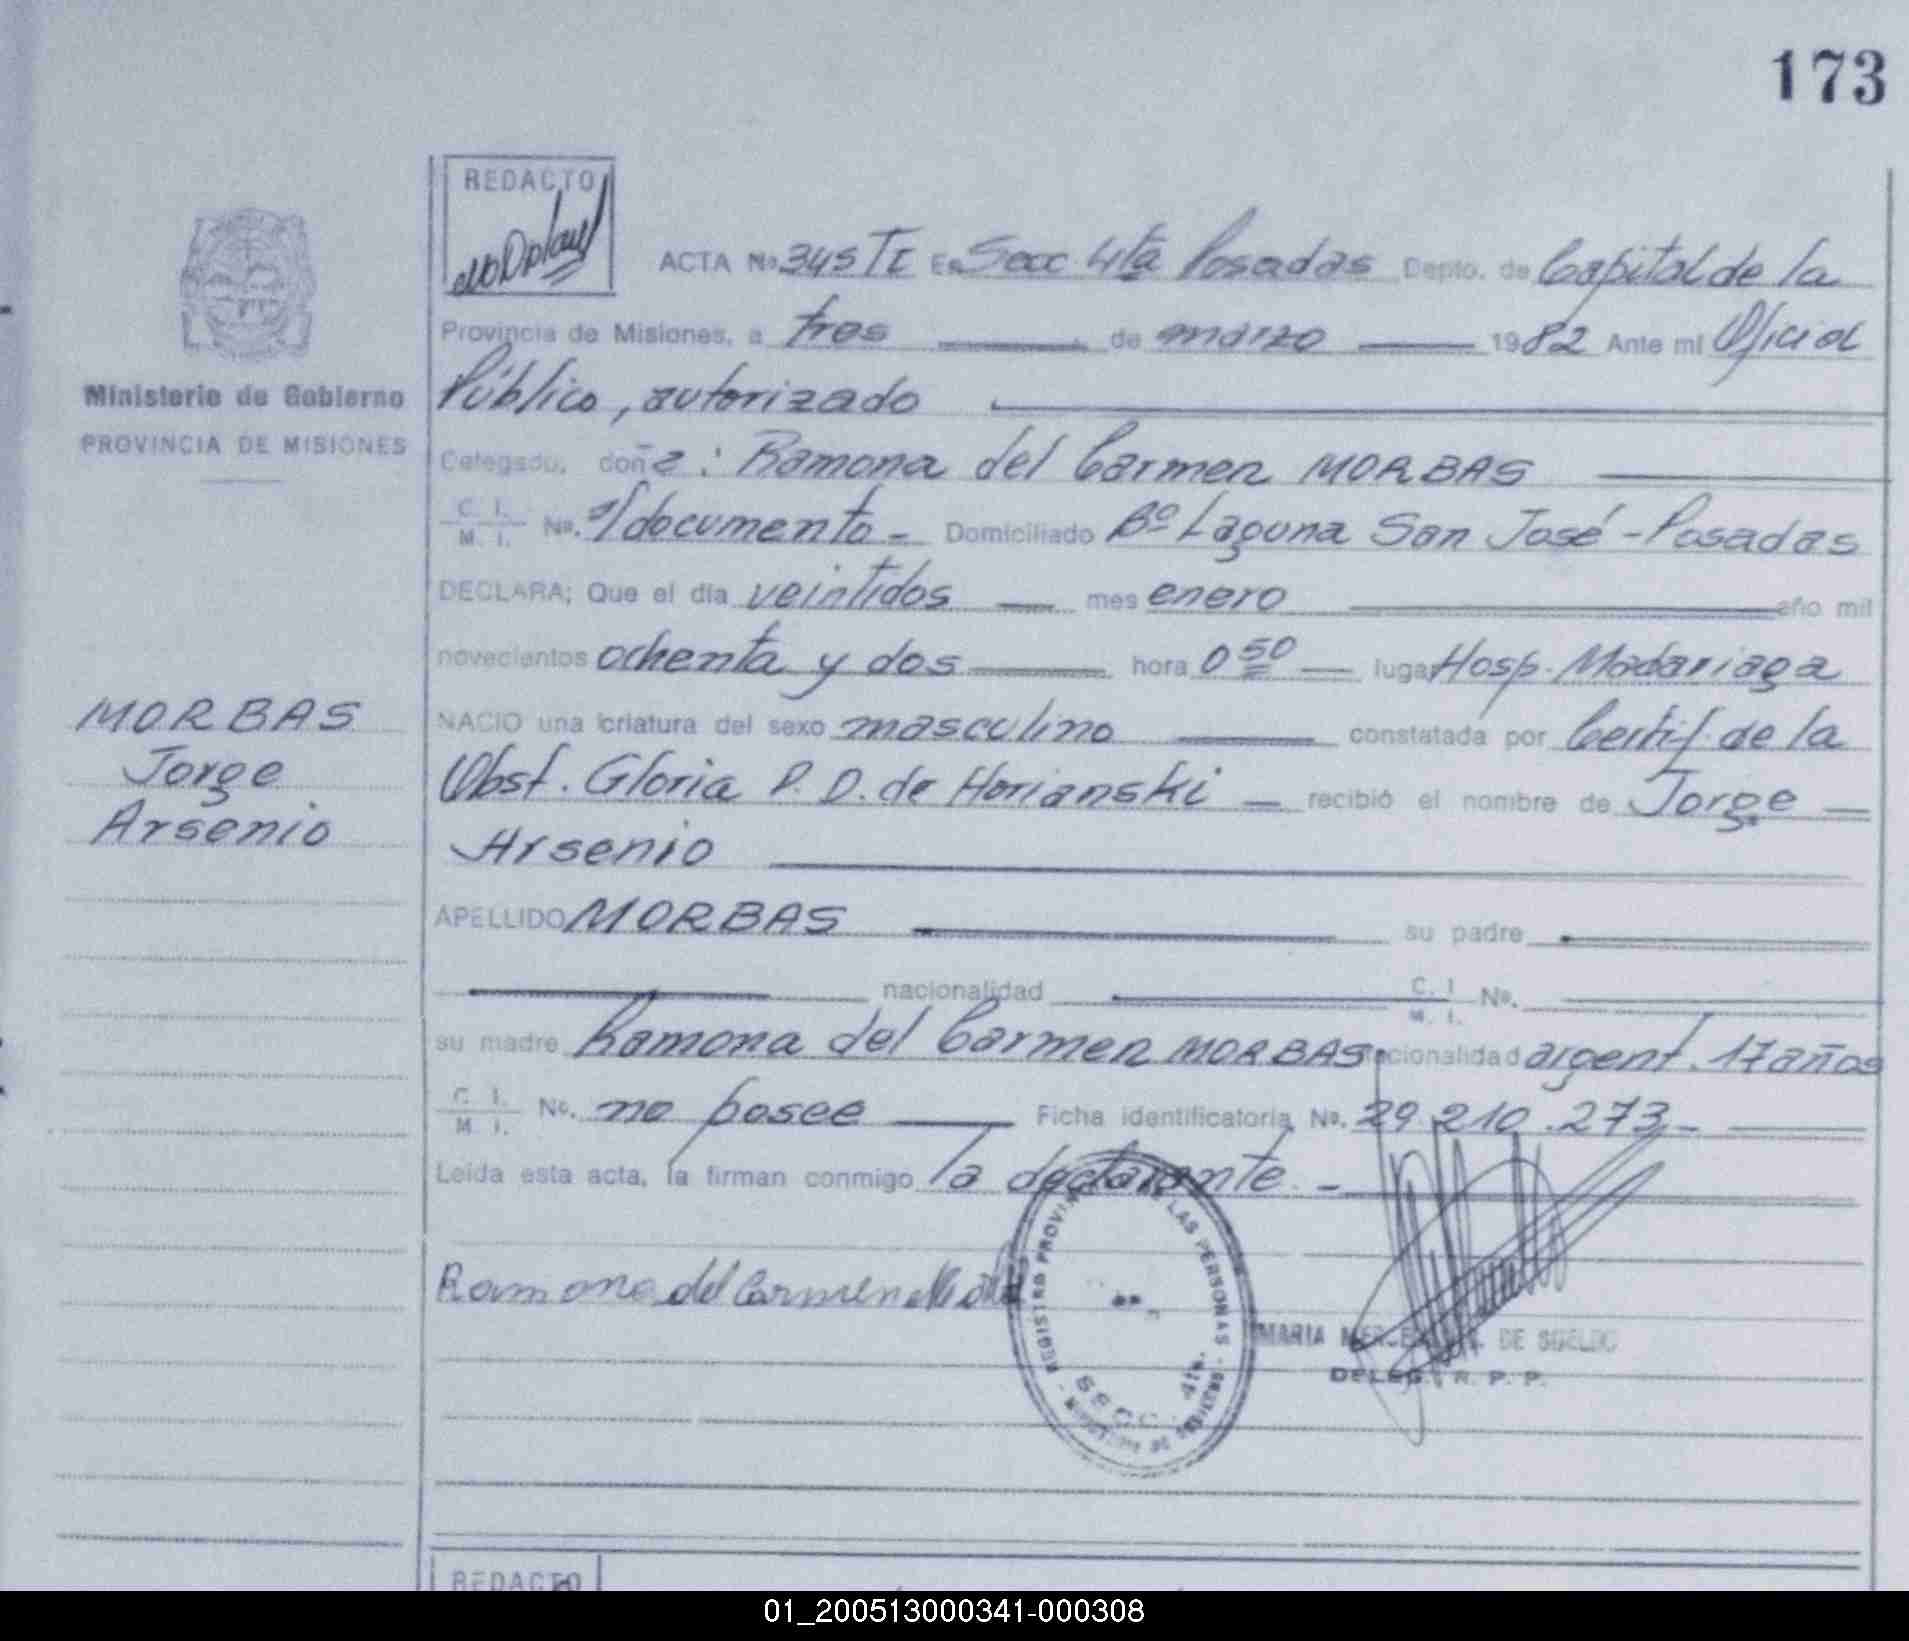 173
REDACTO
ACTA No 345 TE En Secc 4ta Posadas Depto. de Capital de la
Provincia de Misiones, a tres de marzo 1982 Ante mí Oficial
Público, autorizado
Ministerio de Gobierno
PROVINCIA DE MISIONES
Delegado, doña: Ramona del Carmen MORBAS
C. I.
M. I. No. s/documento - Domiciliado Bº Laguna San José - Posadas
DECLARA; Que el día veintidos mes enero año mil
novecientos ochenta y dos hora 0 50 lugar Hosp. Madariaga
MORBAS
Jorge
Arsenio
NACIO una criatura del sexo masculino constatada por Certif. de la
Obst. Gloria P. D. de Horianski recibió el nombre de Jorge
Arsenio
APELLIDO MORBAS su padre
nacionalidad C. I. M. I. No.
su madre Ramona del Carmen MORBAS nacionalidad argent. 17 años
C. I.
M. I. No. no posee Ficha identificatoria No. 29.210.273-
Leída esta acta, la firman conmigo la declarante. -
Ramona del Carmen
REGISTRO LAS PERSONAS
SECC. 4ta.
MARIA DE SUELDO
DELEG. R. P. P.
REDACTO
01_200513000341-000308